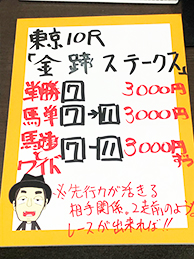 東京10R
「金蹄ステークス」
単勝7 3000円
馬単7→11 3000円
馬連7-11 3000円
ワイド ずつ
※先行力が活きる
相手関係。2走前のような
レースが出来れば!!